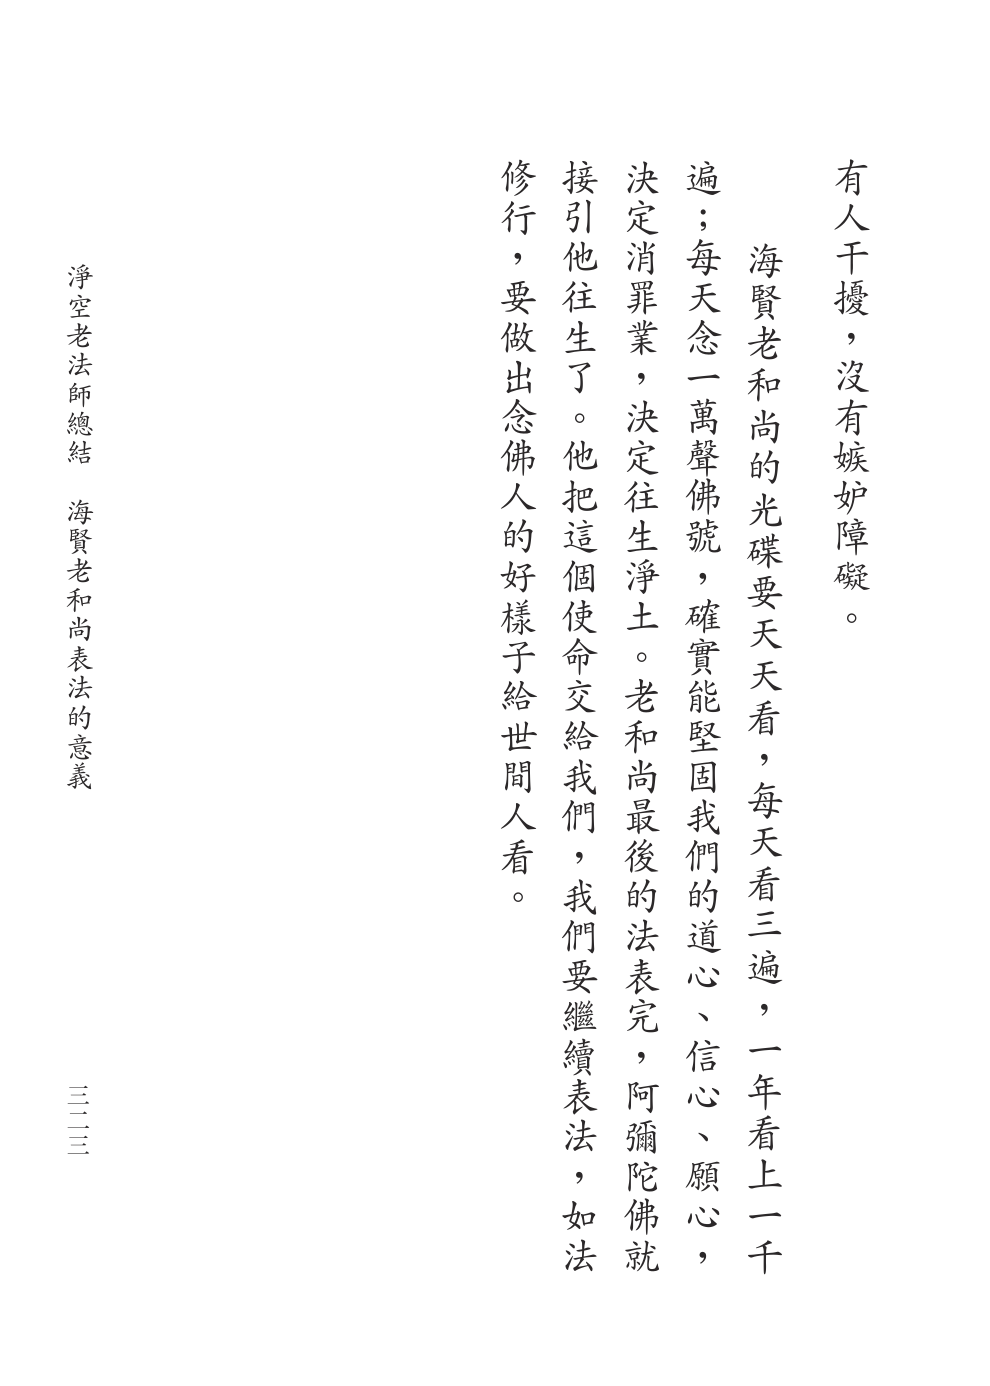 有人干擾，沒有嫉妒障礙。
海賢老和尚的光碟要天天看，每天看三遍，一年看上一千
遍；每天念一萬聲佛號，確實能堅固我們的道心、信心、願心，
決定消罪業，決定往生淨土。老和尚最後的法表完，阿彌陀佛就
接引他往生了。他把這個使命交給我們，我們要繼續表法，如法
修行，要做出念佛人的好樣子給世間人看。
淨空老法師總結　海賢老和尚表法的意義
三二三